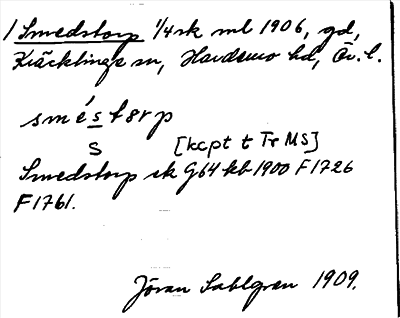 1 Smedstorp 1/4 sk ml 1906, gd,
Kräcklinge sn, Hardemo hd, Ör. l.
sméstɜrp
s
[kcpt t Tr MS]
Smedstorp sk G64 kb 1900 F1726
F1761.
Jöran Sahlgren 1909.